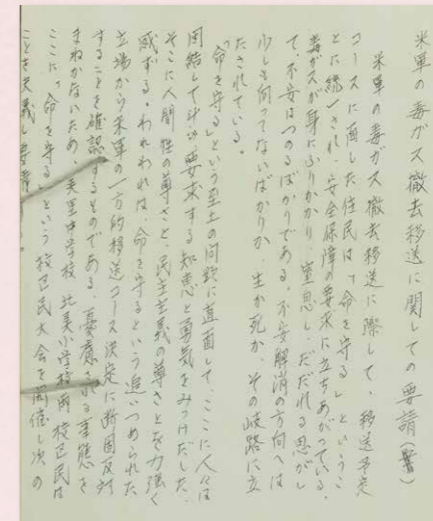 米軍の毒ガス撤去移送に関しての要請(案)
米軍の毒ガス撤去移送に際して、移送予定
コースに面した住民は「命を守る」というこ
とに統一され、安全保障の要求に立ちあがっている。
毒ガスが身にふりかかり、窒息し、ただれる思がし
て、不安はつのるばかりである。不安解消の方向へは
少しも向ってないばかりか、生か死か、その岐路に立
たされている。
「命を守る」という至上の問題に直面して、ここに人々は
団結して斗い要求する知恵と勇気をみつけだした。
そこに人間性の尊さと、民主主義の尊さとを力強く
感ずる。われわれは、命を守るという追いつめられた
立場から米軍の一方的移送コース決定に断固反対
することを確認するものである。憂慮される事態を
まねかないため、美里中学校、北美小学校両校区民は
ここに、「命を守る」という校区民大会を開催し次の
ことを決議し要請